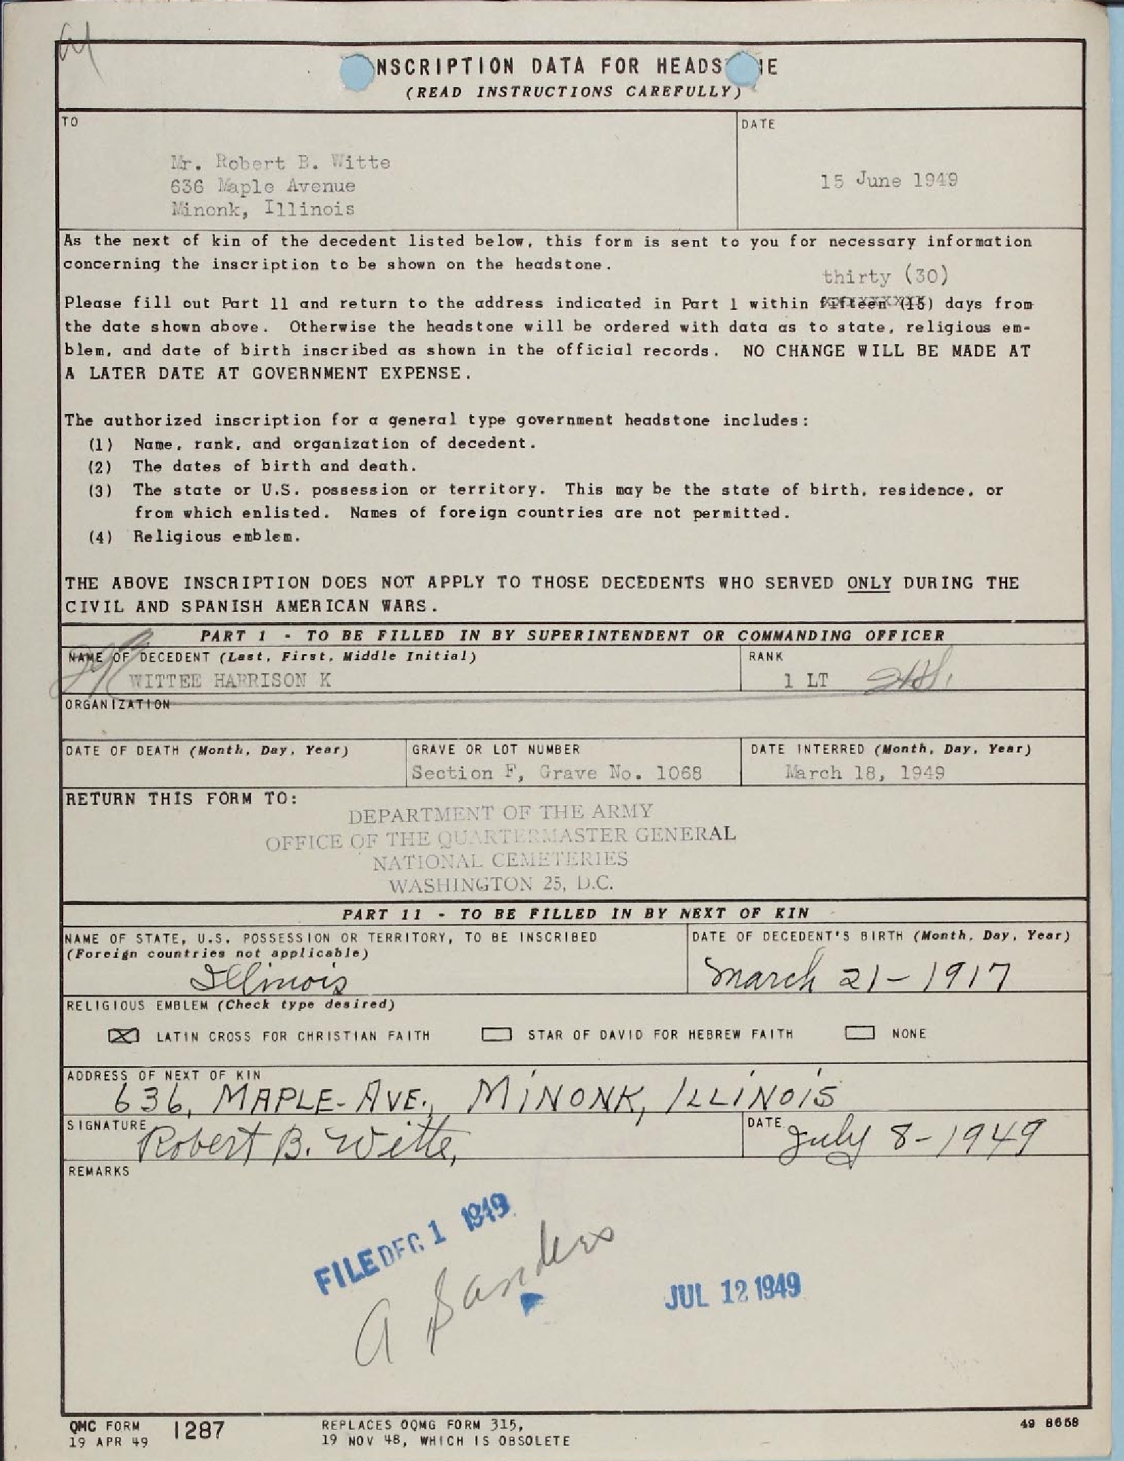 INSCRIPTION DATA FOR HEADSTONE
(READ INSTRUCTIONS CAREFULLY)
TO
DATE
Mr. Robert B. Witte
636 Maple Avenue
Minonk, Illinois
15 June 1949
As the next of kin of the decedent listed below, this form is sent to you for necessary information
concerning the inscription to be shown on the headstone.
thirty (30)
Please fill out Part 11 and return to the address indicated in Part 1 within fifteen (15) days from
the date shown above. Otherwise the headstone will be ordered with data as to state, religious em-
blem, and date of birth inscribed as shown in the official records. NO CHANGE WILL BE MADE AT
A LATER DATE AT GOVERNMENT EXPENSE.
The authorized inscription for a general type government headstone includes:
(1) Name, rank, and organization of decedent.
(2) The dates of birth and death.
(3) The state or U.S. possession or territory. This may be the state of birth, residence, or
from which enlisted. Names of foreign countries are not permitted.
(4) Religious emblem.
THE ABOVE INSCRIPTION DOES NOT APPLY TO THOSE DECEDENTS WHO SERVED ONLY DURING THE
CIVIL AND SPANISH AMERICAN WARS.
PART 1 - TO BE FILLED IN BY SUPERINTENDENT OR COMMANDING OFFICER
NAME OF DECEDENT (Last, First, Middle Initial)
RANK
WITTEE HARRISON K
1 LT
ORGANIZATION
DATE OF DEATH (Month, Day, Year)
GRAVE OR LOT NUMBER
DATE INTERRED (Month, Day, Year)
Section F, Grave No. 1068
March 18, 1949
RETURN THIS FORM TO:
DEPARTMENT OF THE ARMY
OFFICE OF THE QUARTERMASTER GENERAL
NATIONAL CEMETERIES
WASHINGTON 25, D.C.
PART 11 - TO BE FILLED IN BY NEXT OF KIN
NAME OF STATE, U.S. POSSESSION OR TERRITORY, TO BE INSCRIBED
(Foreign countries not applicable)
DATE OF DECEDENT'S BIRTH (Month, Day, Year)
Illinois
March 21-1917
RELIGIOUS EMBLEM (Check type desired)
LATIN CROSS FOR CHRISTIAN FAITH
STAR OF DAVID FOR HEBREW FAITH
NONE
ADDRESS OF NEXT OF KIN
636, MAPLE-AVE., MINONK, ILLINOIS
SIGNATURE
Robert B. Witte,
DATE
July 8-1949
REMARKS
FILE DEC 1 1949
A Sanders
JUL 12 1949
QMC FORM
19 APR 49
1287
REPLACES OQMG FORM 315,
19 NOV 48, WHICH IS OBSOLETE
49 8658